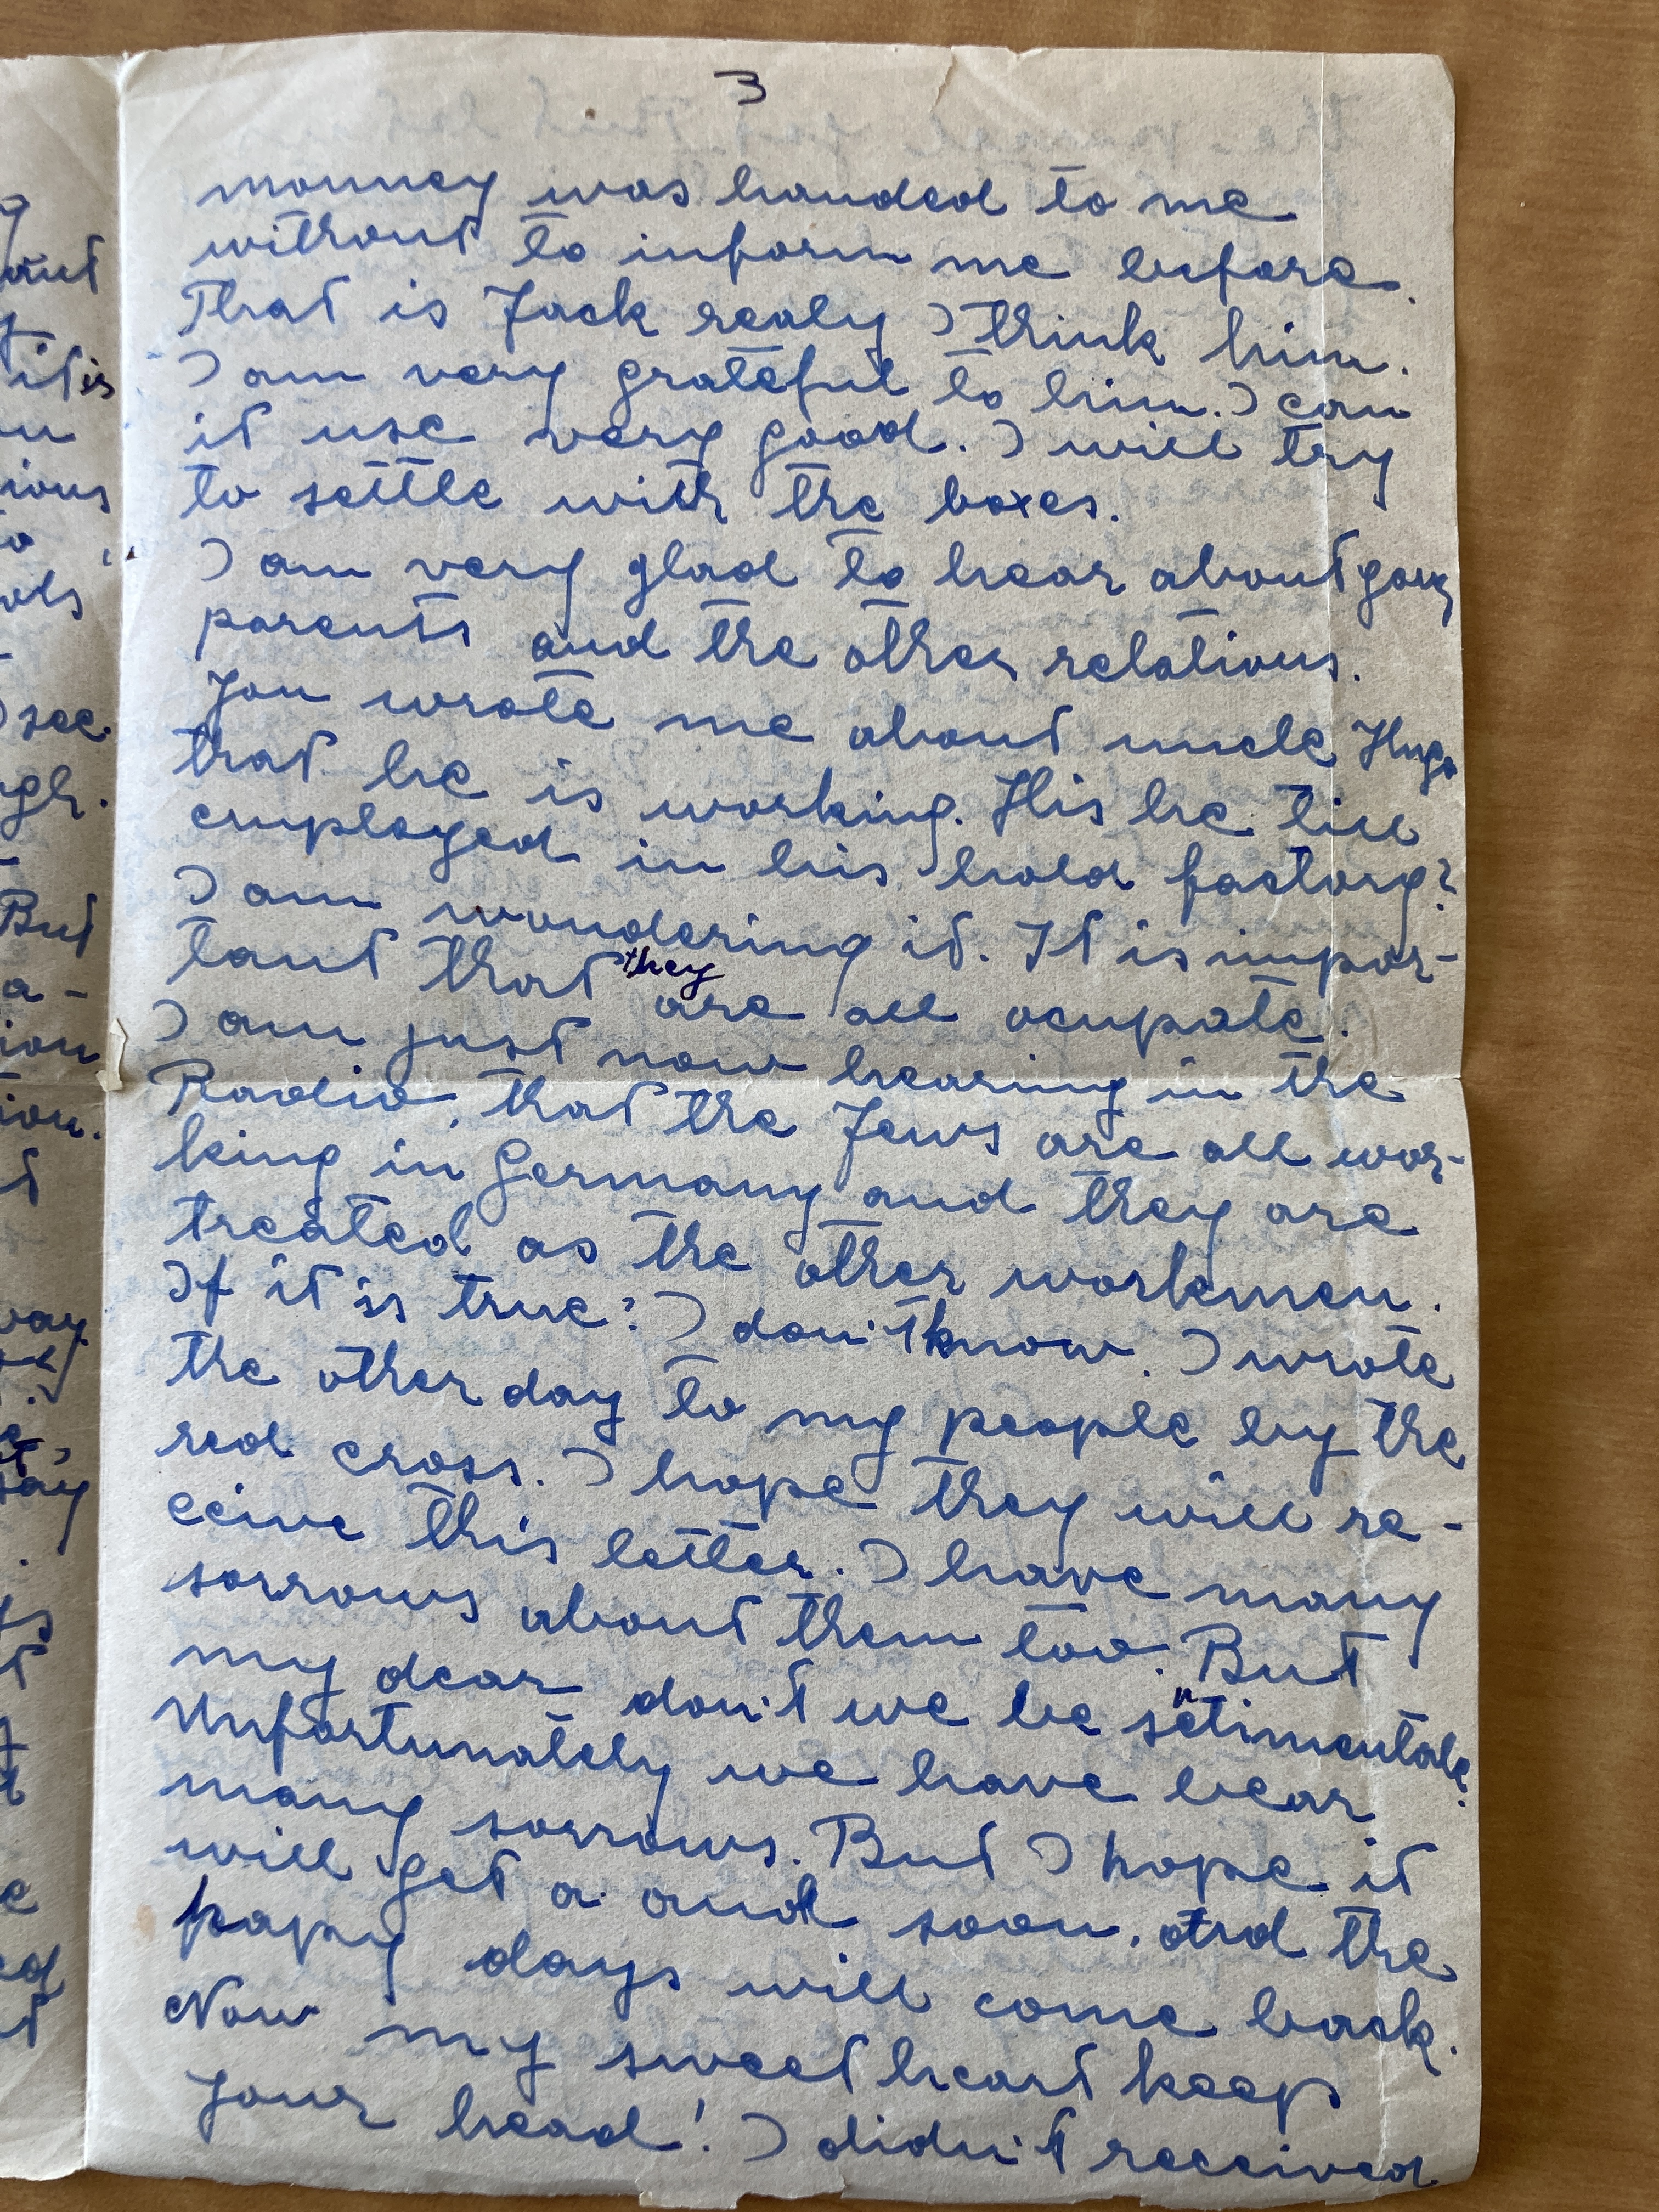 3
monney was handed to me
without to inform me before.
That is Jack realy I think him.
I am very grateful to him. I can
it use very good. I will try
to settle with the boxes.
I am very glad to hear about your
parents and the other relations.
You wrote me about uncle Hugo
that he is working. His he till
employed in his hold factory?
I am wondering it. It is impor-
tant that they are all ocupate.
I am just now hearing in the
Radio, that the Jews are all wor-
king in Germany and they are
treated as the other workmen.
If it is true? I don't know. I wrote
the other day to my people by the
red cross. I hope they will re-
ceive this letter. I have many
sorrows about them too. But
my dear don't we be sentimentale.
Unfortunately we have bear
many sorrows. But I hope it
will get a and soon, and the
hapy days will come back.
Now my sweetheart keep
your head! I didn't received
ant
it is
ious
ols
I see.
But
a-
ion
ion.
way
say